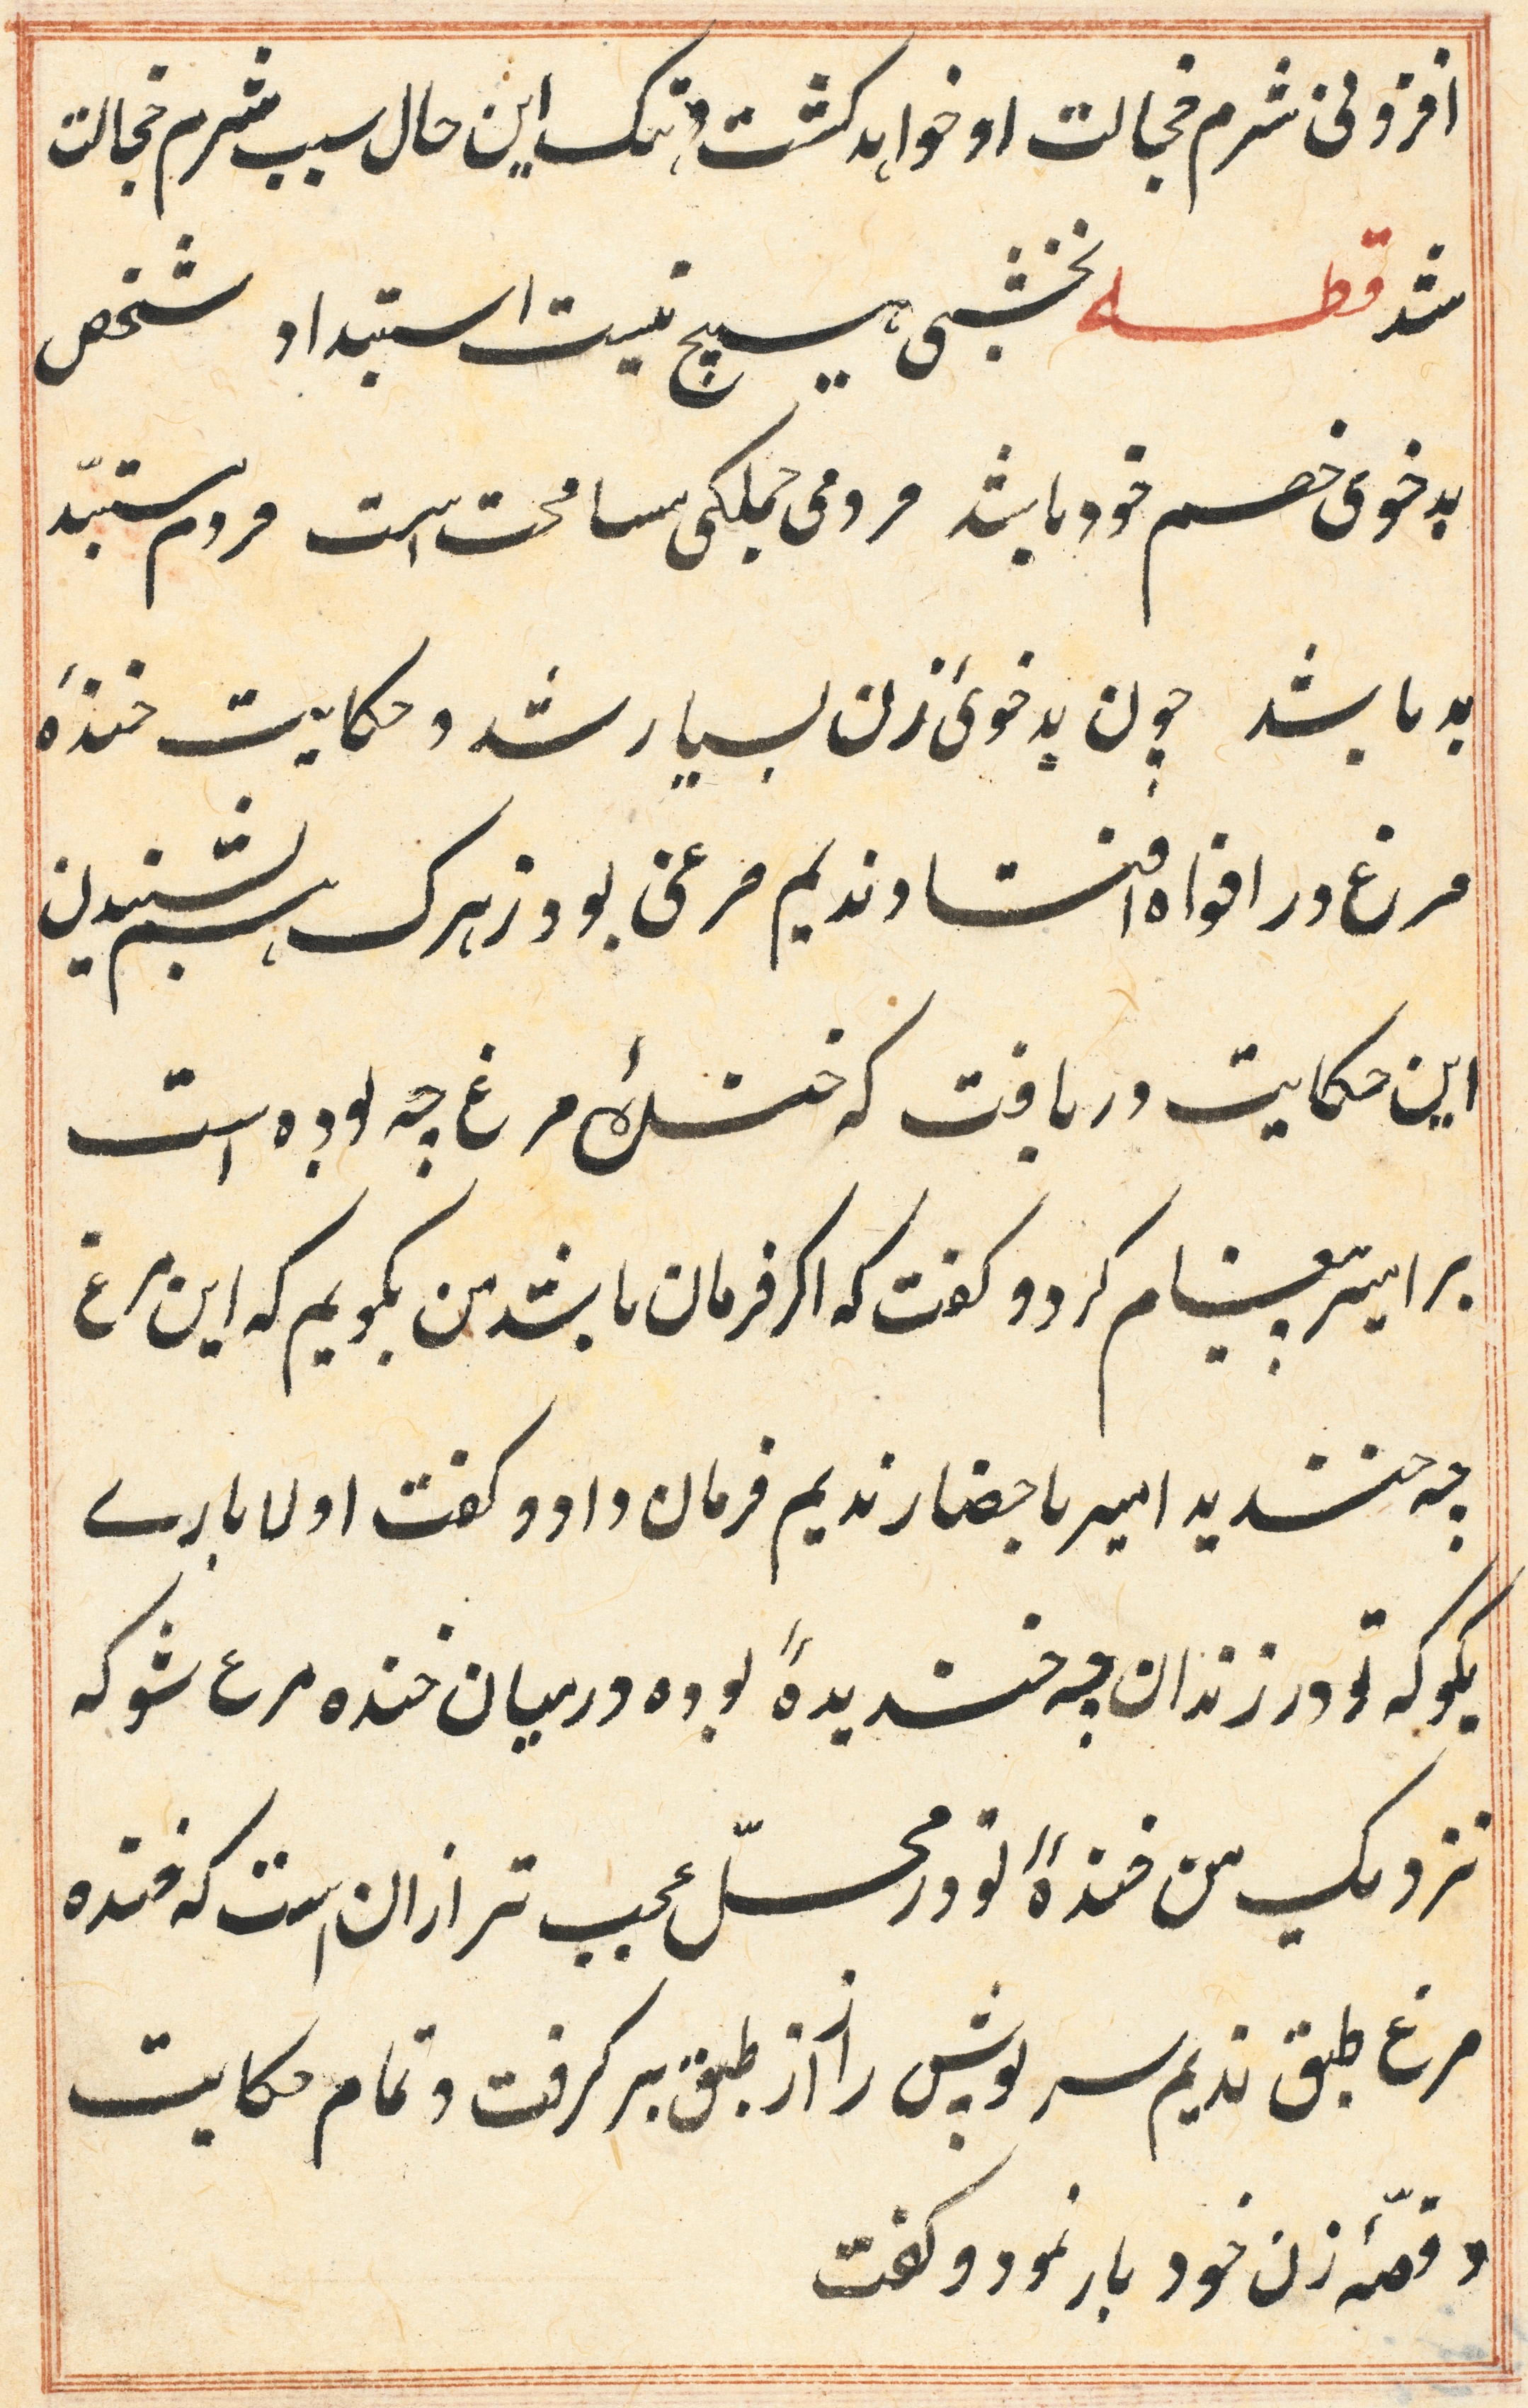 افزونی شرم خجالت او خواهد کشت و هتک این حال سبب شرم خجالت
شد قطعه نخشبی هیچ نیست استبداد شخص
بد خوی خصم خود باشد مردمی جملکی مسامحت است مردم مستبدّ
بد باشد چون بد خوئ زن بسیار شد و حکایت خندهٔ
مرغ در افواه افتاد ندیم مرغی بود زیرک هم بشنیدن
این حکایت دریافت که خندهٔ مرغ چه بوده است
بر امیر پیغام کرد و کفت که اکر فرمان باشد من بکویم که این مرغ
چه خندید امیر باحضار ندیم فرمان داد و کفت اولا بارے
بکو که تو در زندان چه خندیدهٔ بوده درمیان خنده مرغ شو که
نزدیک من خندهٔ تو در محلّ عجب تر ازان است که خنده
مرغ طبق ندیم سر پوش را از طبق بر کرفت و تمام حکایت
و قصّهٔ زن خود باز نمود و کفت